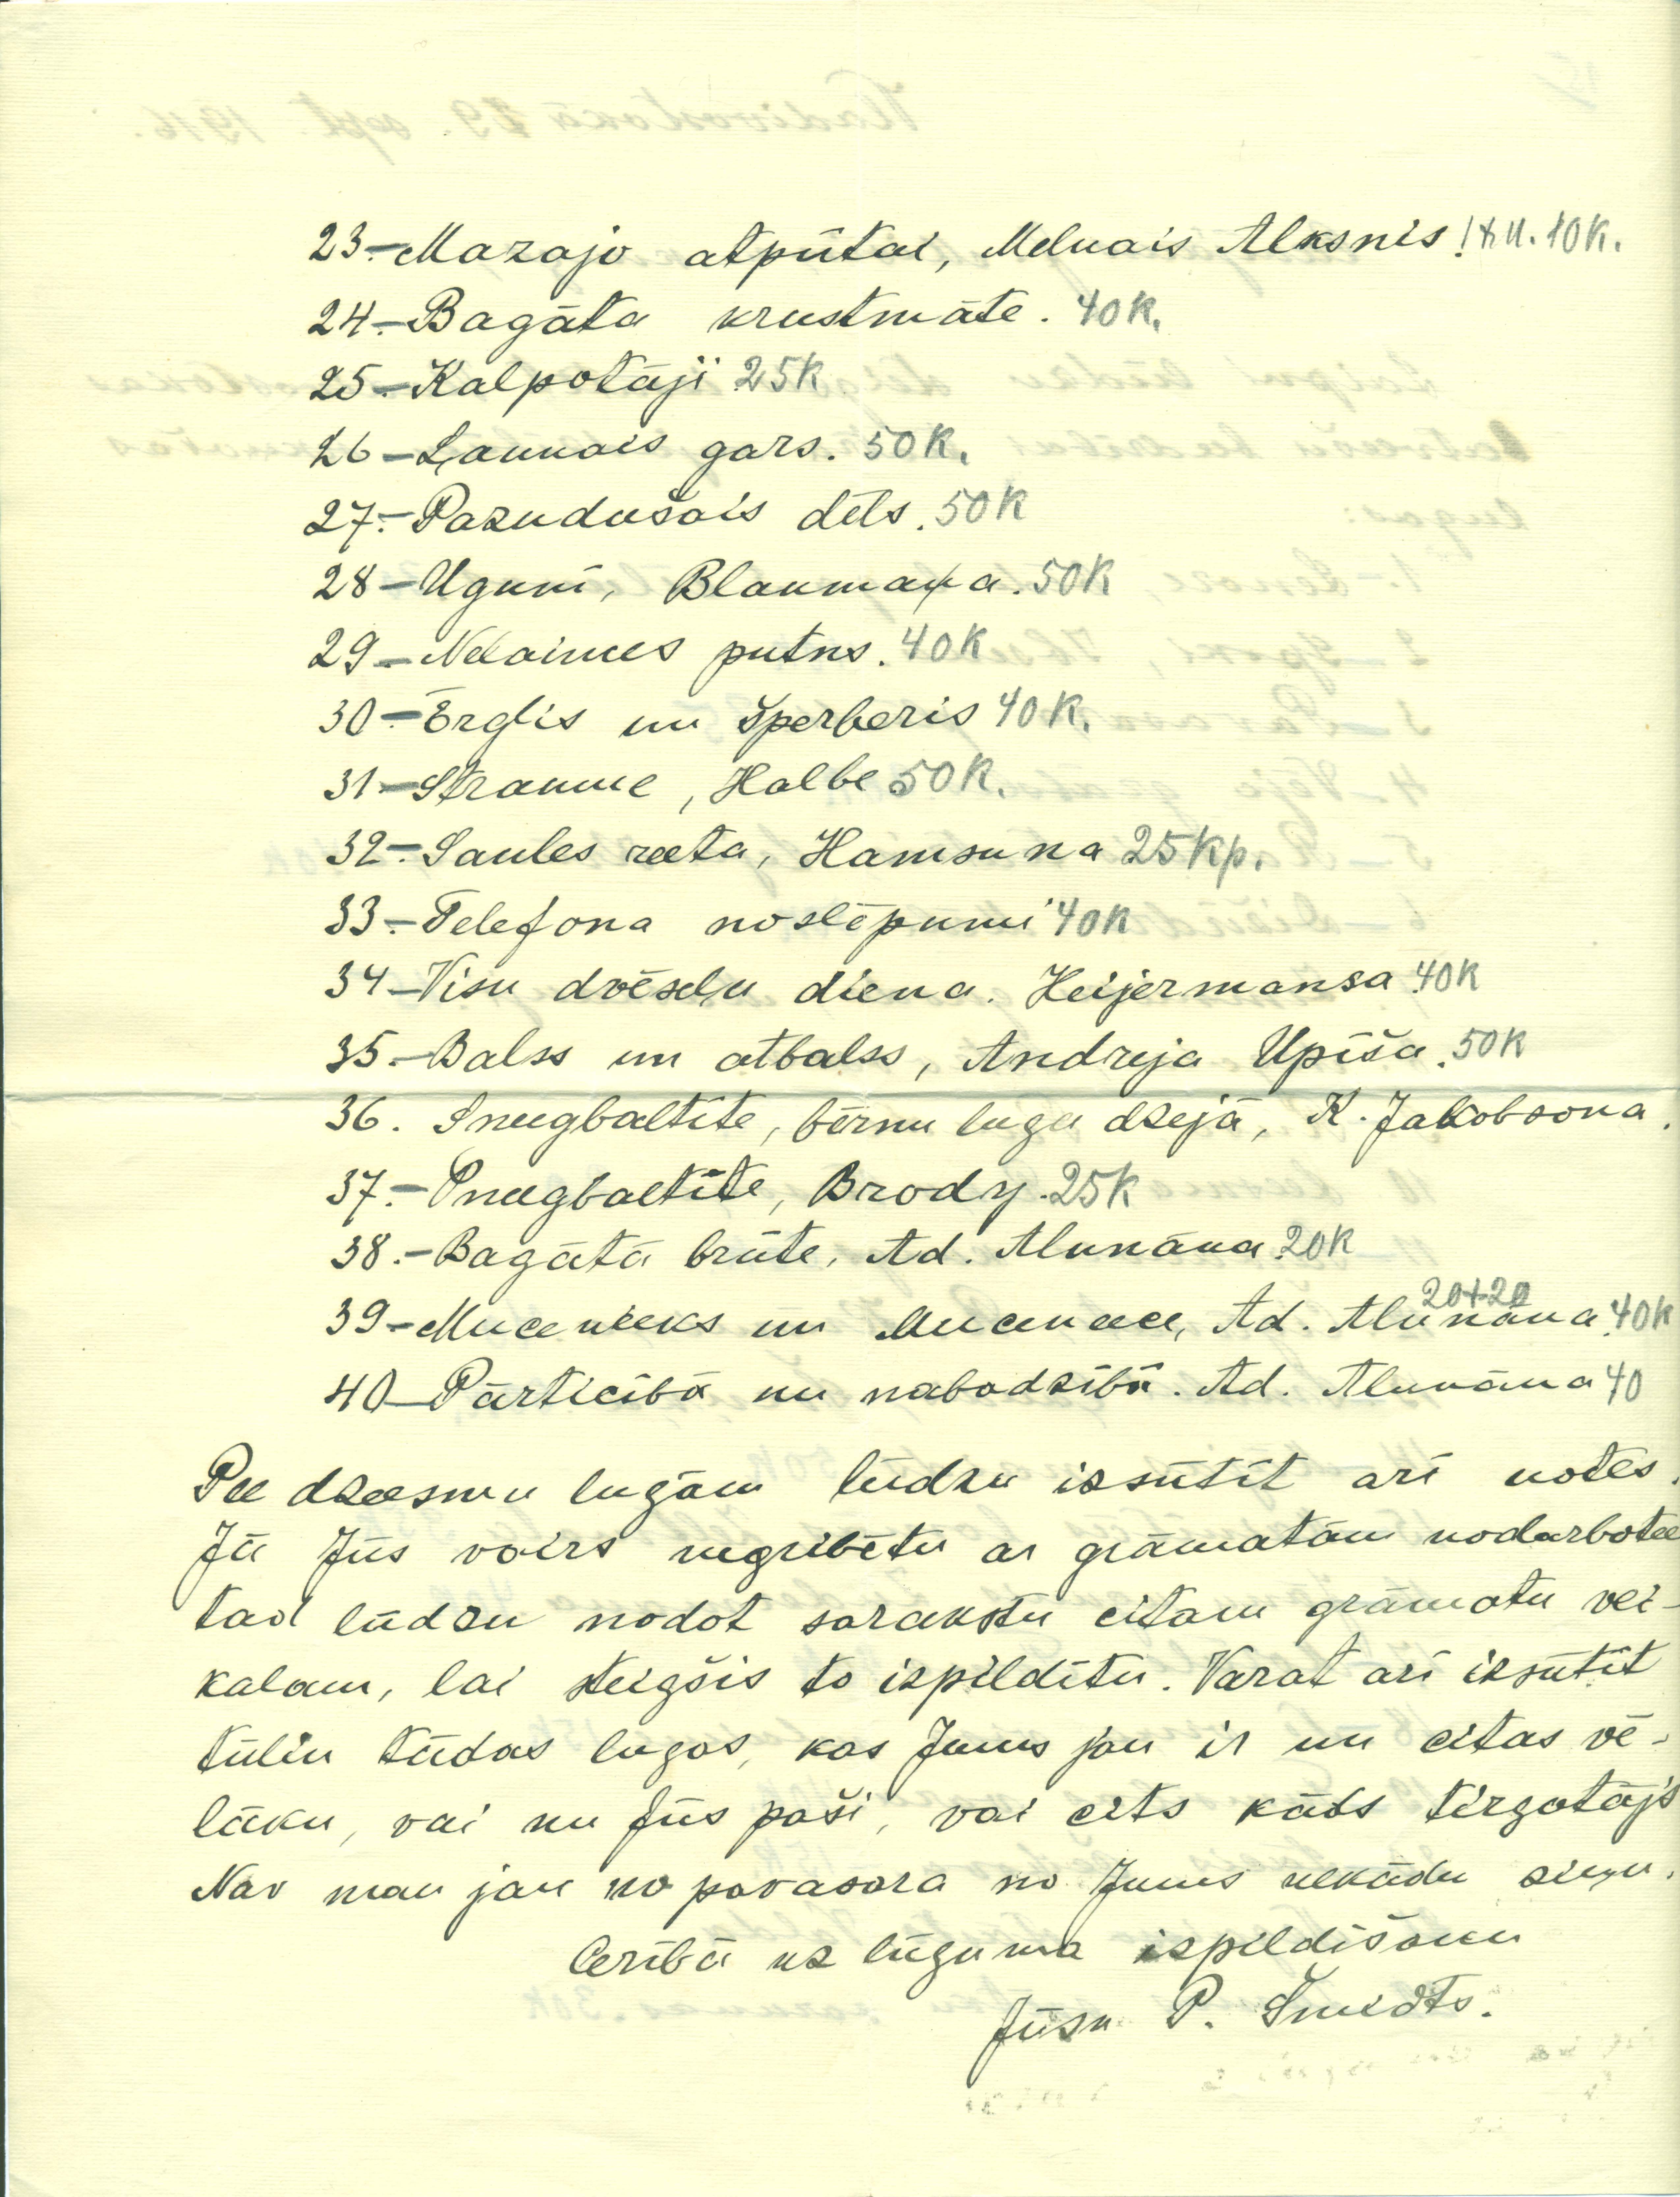 23.- Mazajo atpūtai, Melnais Alksnis! I & II. 10K.
24.- Bagāta krustmāte. 40K.
25.- Kalpotāji 25K
26.- Launais gars. 50K.
27.- Pazudušais dēls. 50K
28.- Uguni, Blaumaņa. 50K
29.- Nelaimes putns. 40K
30.- Ērglis un Šperberis 40K.
31.- Straume, Halbe 50K.
32.- Saules reeta, Hamsuna 25Kp.
33.- Telefona noslēpumi 40K
34.- Visu dvēseļu diena. Heijermansa 40K
35.- Balss un atbalss, Andreja Upīša. 50K
36. Sneegbaltīte, bērnu luga dzejā, K. Jakobsona.
37.- Sneegbaltīte, Brody. 25K
38.- Bagāta brūte, Ad. Alunāna 20K
20+20
39.- Muceneeks un Muceneece, Ad. Alunāna 40K
40.- Pārticībā un nabadzībā. Ad. Alunāna 40
Pee dzeesmu lugām lūdzu issūtīt arī notes.
Ja Jūs vairs negribētu ar grāmatām nodarbotee
tad lūdzu nodot sarakstu citam grāmatu vei-
kalam, lai steigšis to ispildītu. Varat arī issūtīt
tūlin tādas lugas, kas Jums jau ir un citas vē-
lāku, vai nu Jūs paši, vai cits kāds tirgotājs
Nav man jau no pavasara no Jums nekādu ziņu.
Cerībā uz lūguma ispildīšanu
Jūsu P. Šmidts.